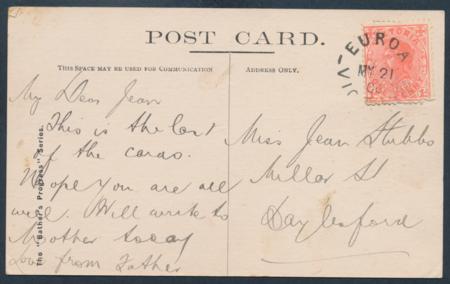 POST CARD.
THIS SPACE MAY BE USED FOR COMMUNICATION
ADDRESS ONLY.
EUROA
MY 21
VIC
The "Bather's Progress" Series.
My Dear Jean
This is the last
of the cards.
Hope you are all
well. Will write to
Mother today
Love from Father
Miss Jean Stubbs
Millar St
Daylesford